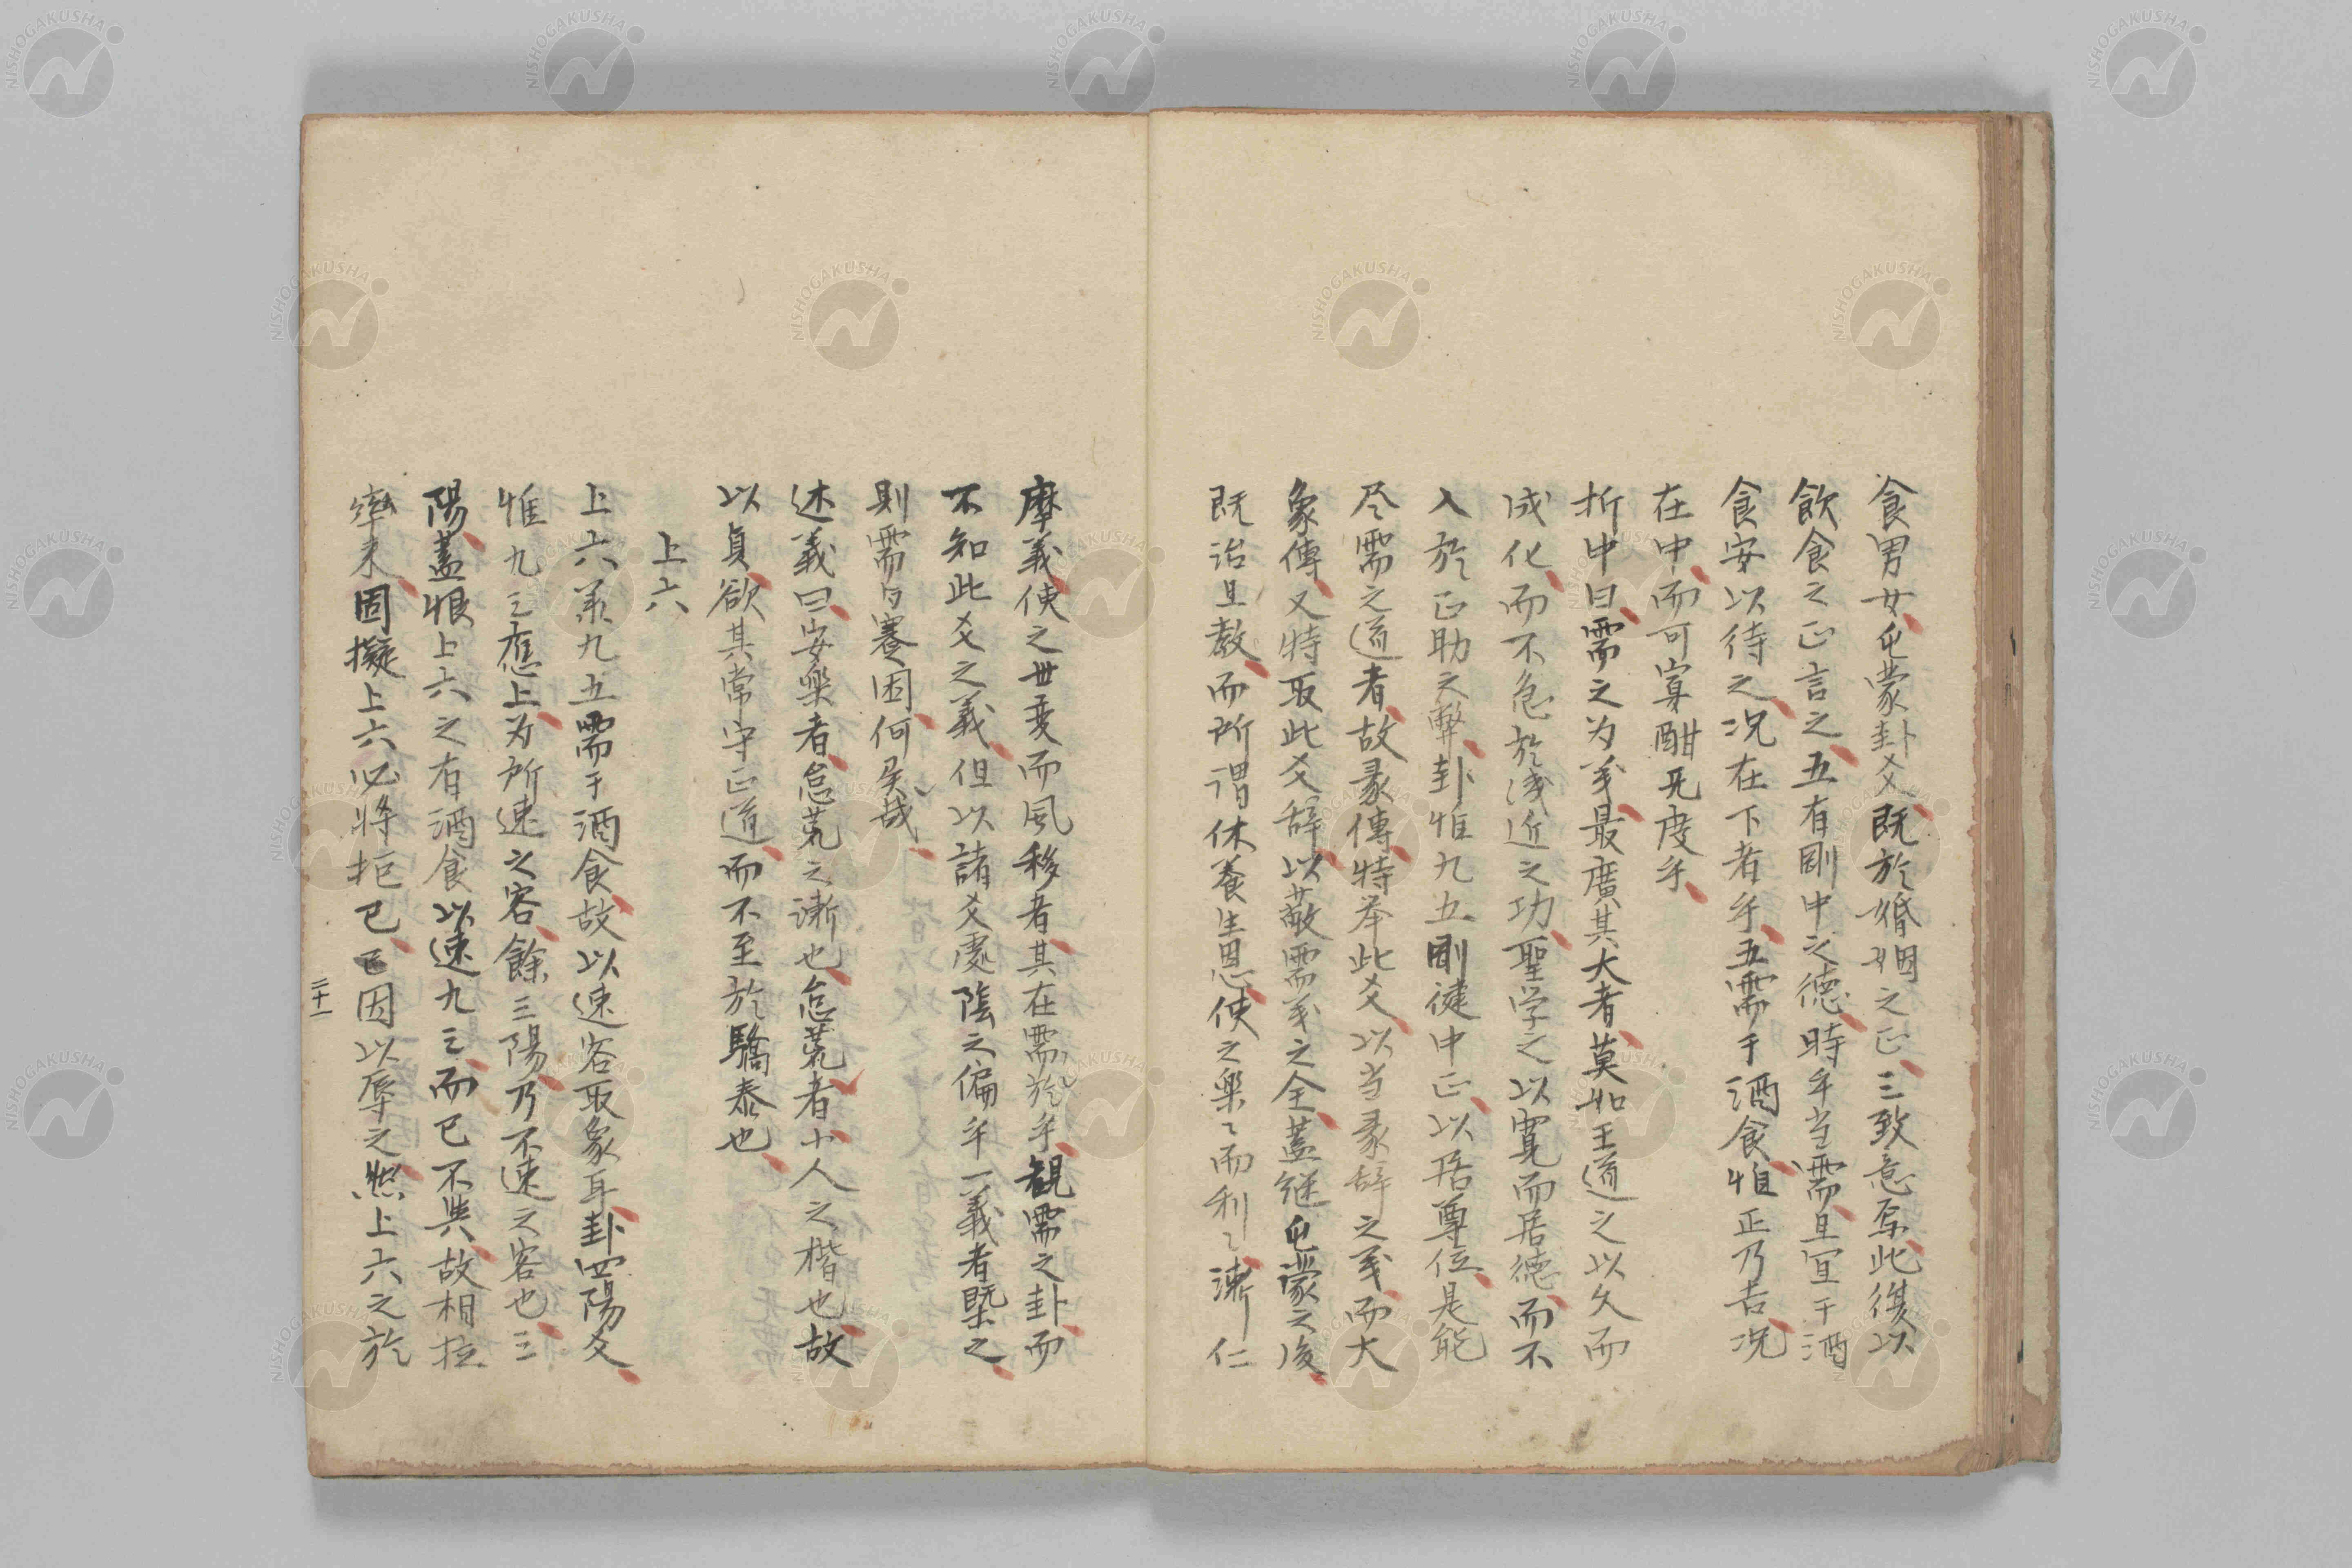 食男女屯蒙卦爻既於婚姻之正三致意焉此復以
飲食之正言之五有剛中之德時乎当需且宜于酒
食安以待之况在下者乎五需于酒食惟正乃吉况
在中而可宴酣无度乎
折中曰需之为義最廣其大者莫如王道之以久而
成化而不急於浅近之功聖学之以寛而居德而不
入於正助之弊卦惟九五剛健中正以居尊位是能
尽需之道者故彖傳特举此爻以当彖辞之義而大
象傳又特取此爻辞以蔽需義之全蓋継屯蒙之後
既治且教而所謂休養生息使之楽〻而利〻漸仁
摩義使之世变而風移者其在需於乎観需之卦而
不知此爻之義但以諸爻處陰之偏乎一義者槩之
則需与蹇困何矣哉
述義曰安樂者怠荒之漸也怠荒者小人之楷也故
以貞欲其常守正道而不至於驕泰也
上六
上六兼九五需于酒食故以速客取象耳卦四陽爻
惟九三應上为所速之客餘三陽乃不速之客也三
陽蓋恨上六之有酒食以速九三而已不與故相拉
率来固擬上六必将拒已已因以辱之然上六之於
三十一
NISHOGAKUSHA